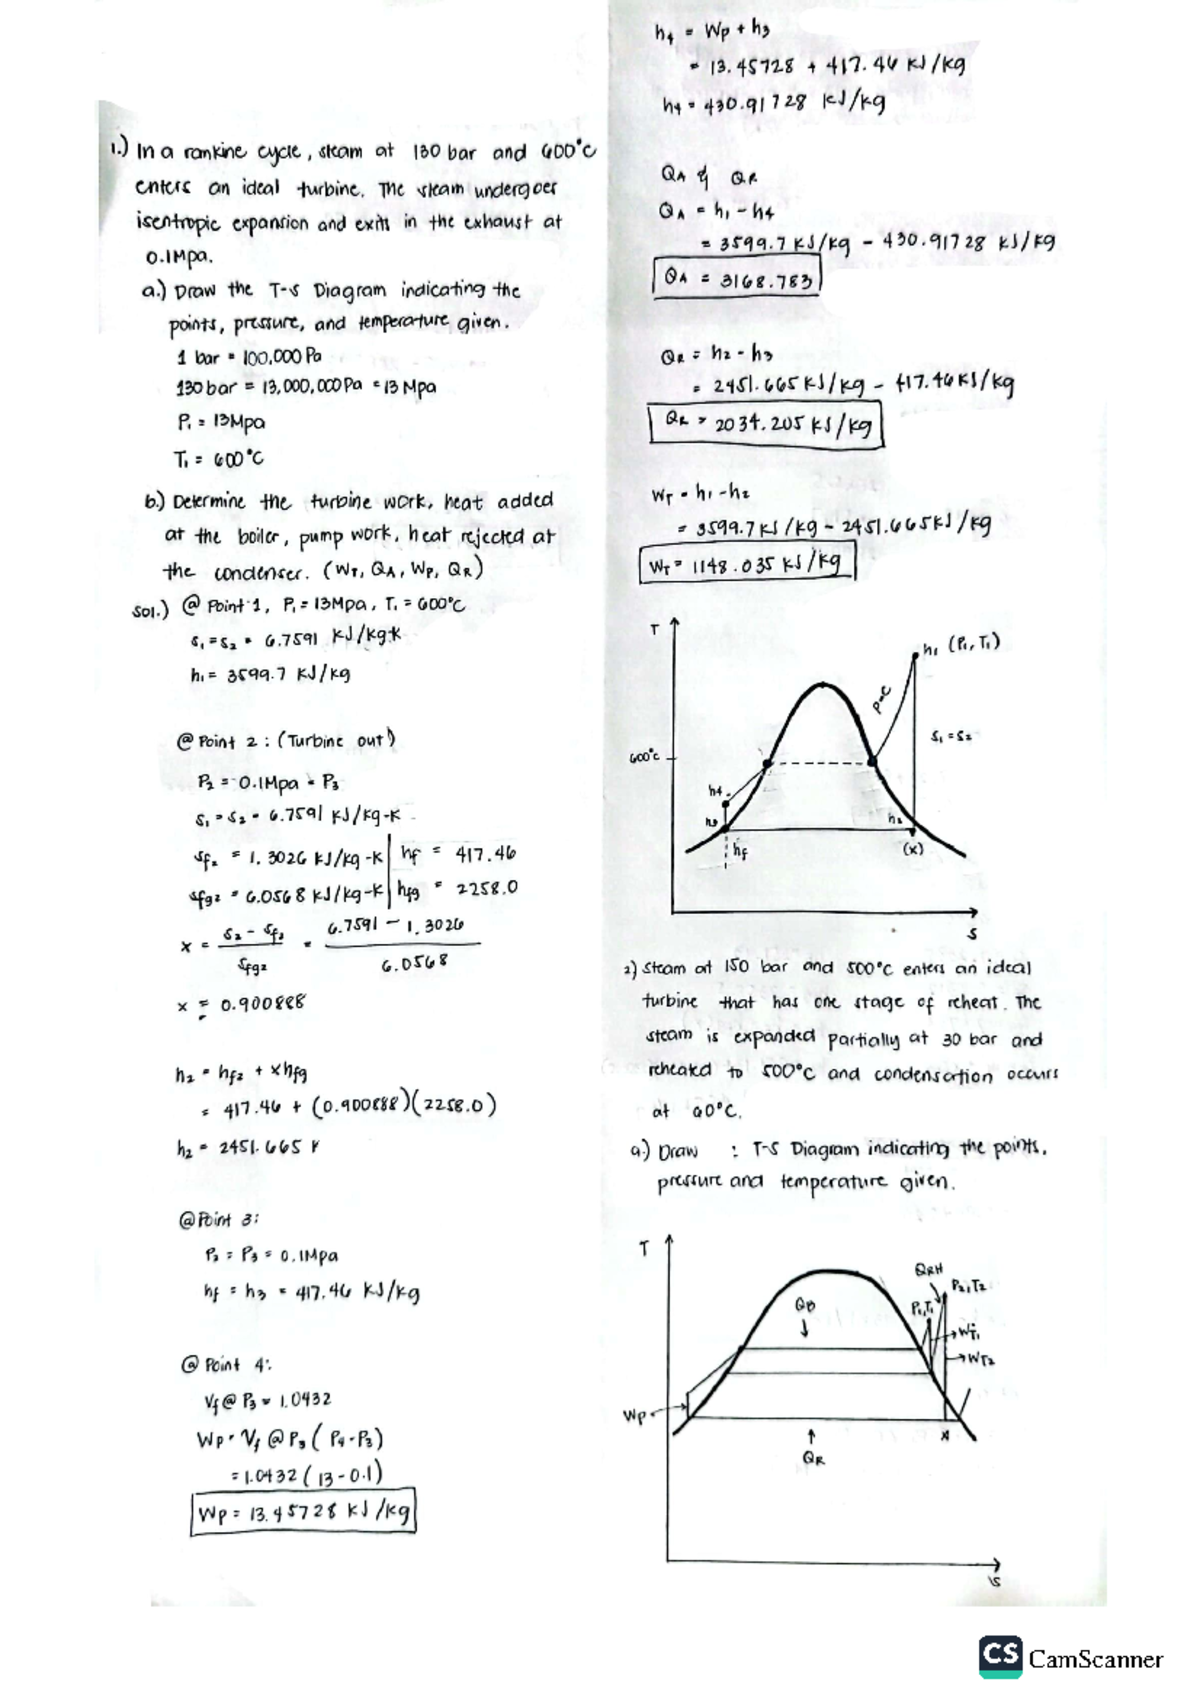 1.) In a rankine cycle, steam at 130 bar and 600°C
enters an ideal turbine. The steam undergoes
isentropic expansion and exits in the exhaust at
0.1Mpa.
a.) Draw the T-s Diagram indicating the
points, pressure, and temperature given.
1 bar = 100,000 Pa
130 bar = 13,000,000 Pa = 13 Mpa
P₁ = 13Mpa
T₁ = 600°C
b.) Determine the turbine work, heat added
at the boiler, pump work, heat rejected at
the condenser. (WT, QA, WP, QR)
Sol.) @ Point 1, P₁ = 13Mpa, T₁ = 600°C
s₁ = s₂ = 6.7591 kJ/kg-k
h₁ = 3599.7 kJ/kg
@ Point 2 : (Turbine out)
P₂ = 0.1Mpa = P₃
s₁ = s₂ = 6.7591 kJ/kg-K
sf₂ = 1.3026 kJ/kg-K | hf = 417.46
sfg₂ = 6.0568 kJ/kg-K | hfg = 2258.0
x = s₂ - sf₂ / sfg₂ = 6.7591 - 1.3026 / 6.0568
x = 0.900888
h₂ = hf₂ + xhfg
= 417.46 + (0.900888)(2258.0)
h₂ = 2451.665 k
@ Point 3:
P₂ = P₃ = 0.1Mpa
hf = h₃ = 417.46 kJ/kg
@ Point 4:
Vf @ P₃ = 1.0432
Wp = Vf @ P₃ (P₄-P₃)
= 1.0432 (13-0.1)
Wp = 13.45728 kJ/kg
h₄ = Wp + h₃
= 13.45728 + 417.46 kJ/kg
h₄ = 430.91728 kJ/kg
QA & QR
QA = h₁ - h₄
= 3599.7 kJ/kg - 430.91728 kJ/kg
QA = 3168.783
QR = h₂ - h₃
= 2451.665 kJ/kg - 417.46 kJ/kg
QR = 2034.205 kJ/kg
WT = h₁ - h₂
= 3599.7 kJ/kg - 2451.665 kJ/kg
WT = 1148.035 kJ/kg
T
h₁ (P₁, T₁)
P=C
s₁ = s₂
600°C
h4
h3
hf
h2
(x)
s
2) Steam at 150 bar and 500°C enters an ideal
turbine that has one stage of reheat. The
steam is expanded partially at 30 bar and
reheated to 500°C and condensation occurs
at 60°C.
a.) Draw : T-S Diagram indicating the points,
pressure and temperature given.
T
QRH
P₂, T₂
P₁, T₁
WT₁
WT₂
Wp
QR
x
s
CS CamScanner